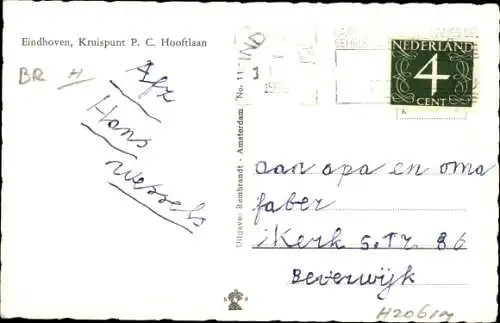 Eindhoven, Kruispunt P. C. Hooftlaan
BR H
Afz
Hans
Wessels
Uitgave: Rembrandt - Amsterdam No. 11
IND
NEDERLAND
4
CENT
aan opa en oma
faber
Kerk str 86
Beverwijk
H2061y